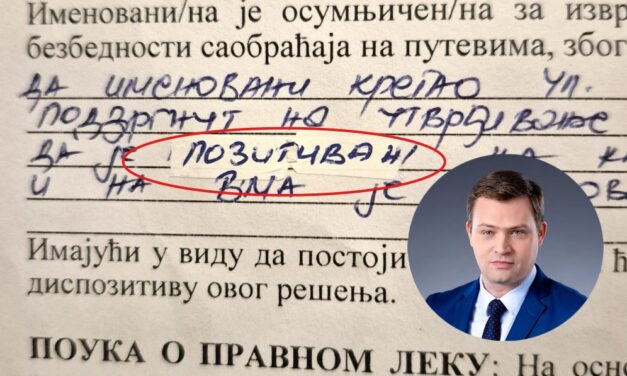 Именовани/на је осумњичен/на за извр
безбедности саобраћаја на путевима, због
ДА ИМЕНОВАНИ КРЕТАО УЛ.
ПОДВРГНУТ НА УТВРЂИВАЊЕ
ДА ЈЕ ПОЗИТИВАН НА К
И НА ВМА ЈЕ ОВ
Имајући у виду да постоји ћ
диспозитиву овог решења.
ПОУКА О ПРАВНОМ ЛЕКУ: На осно